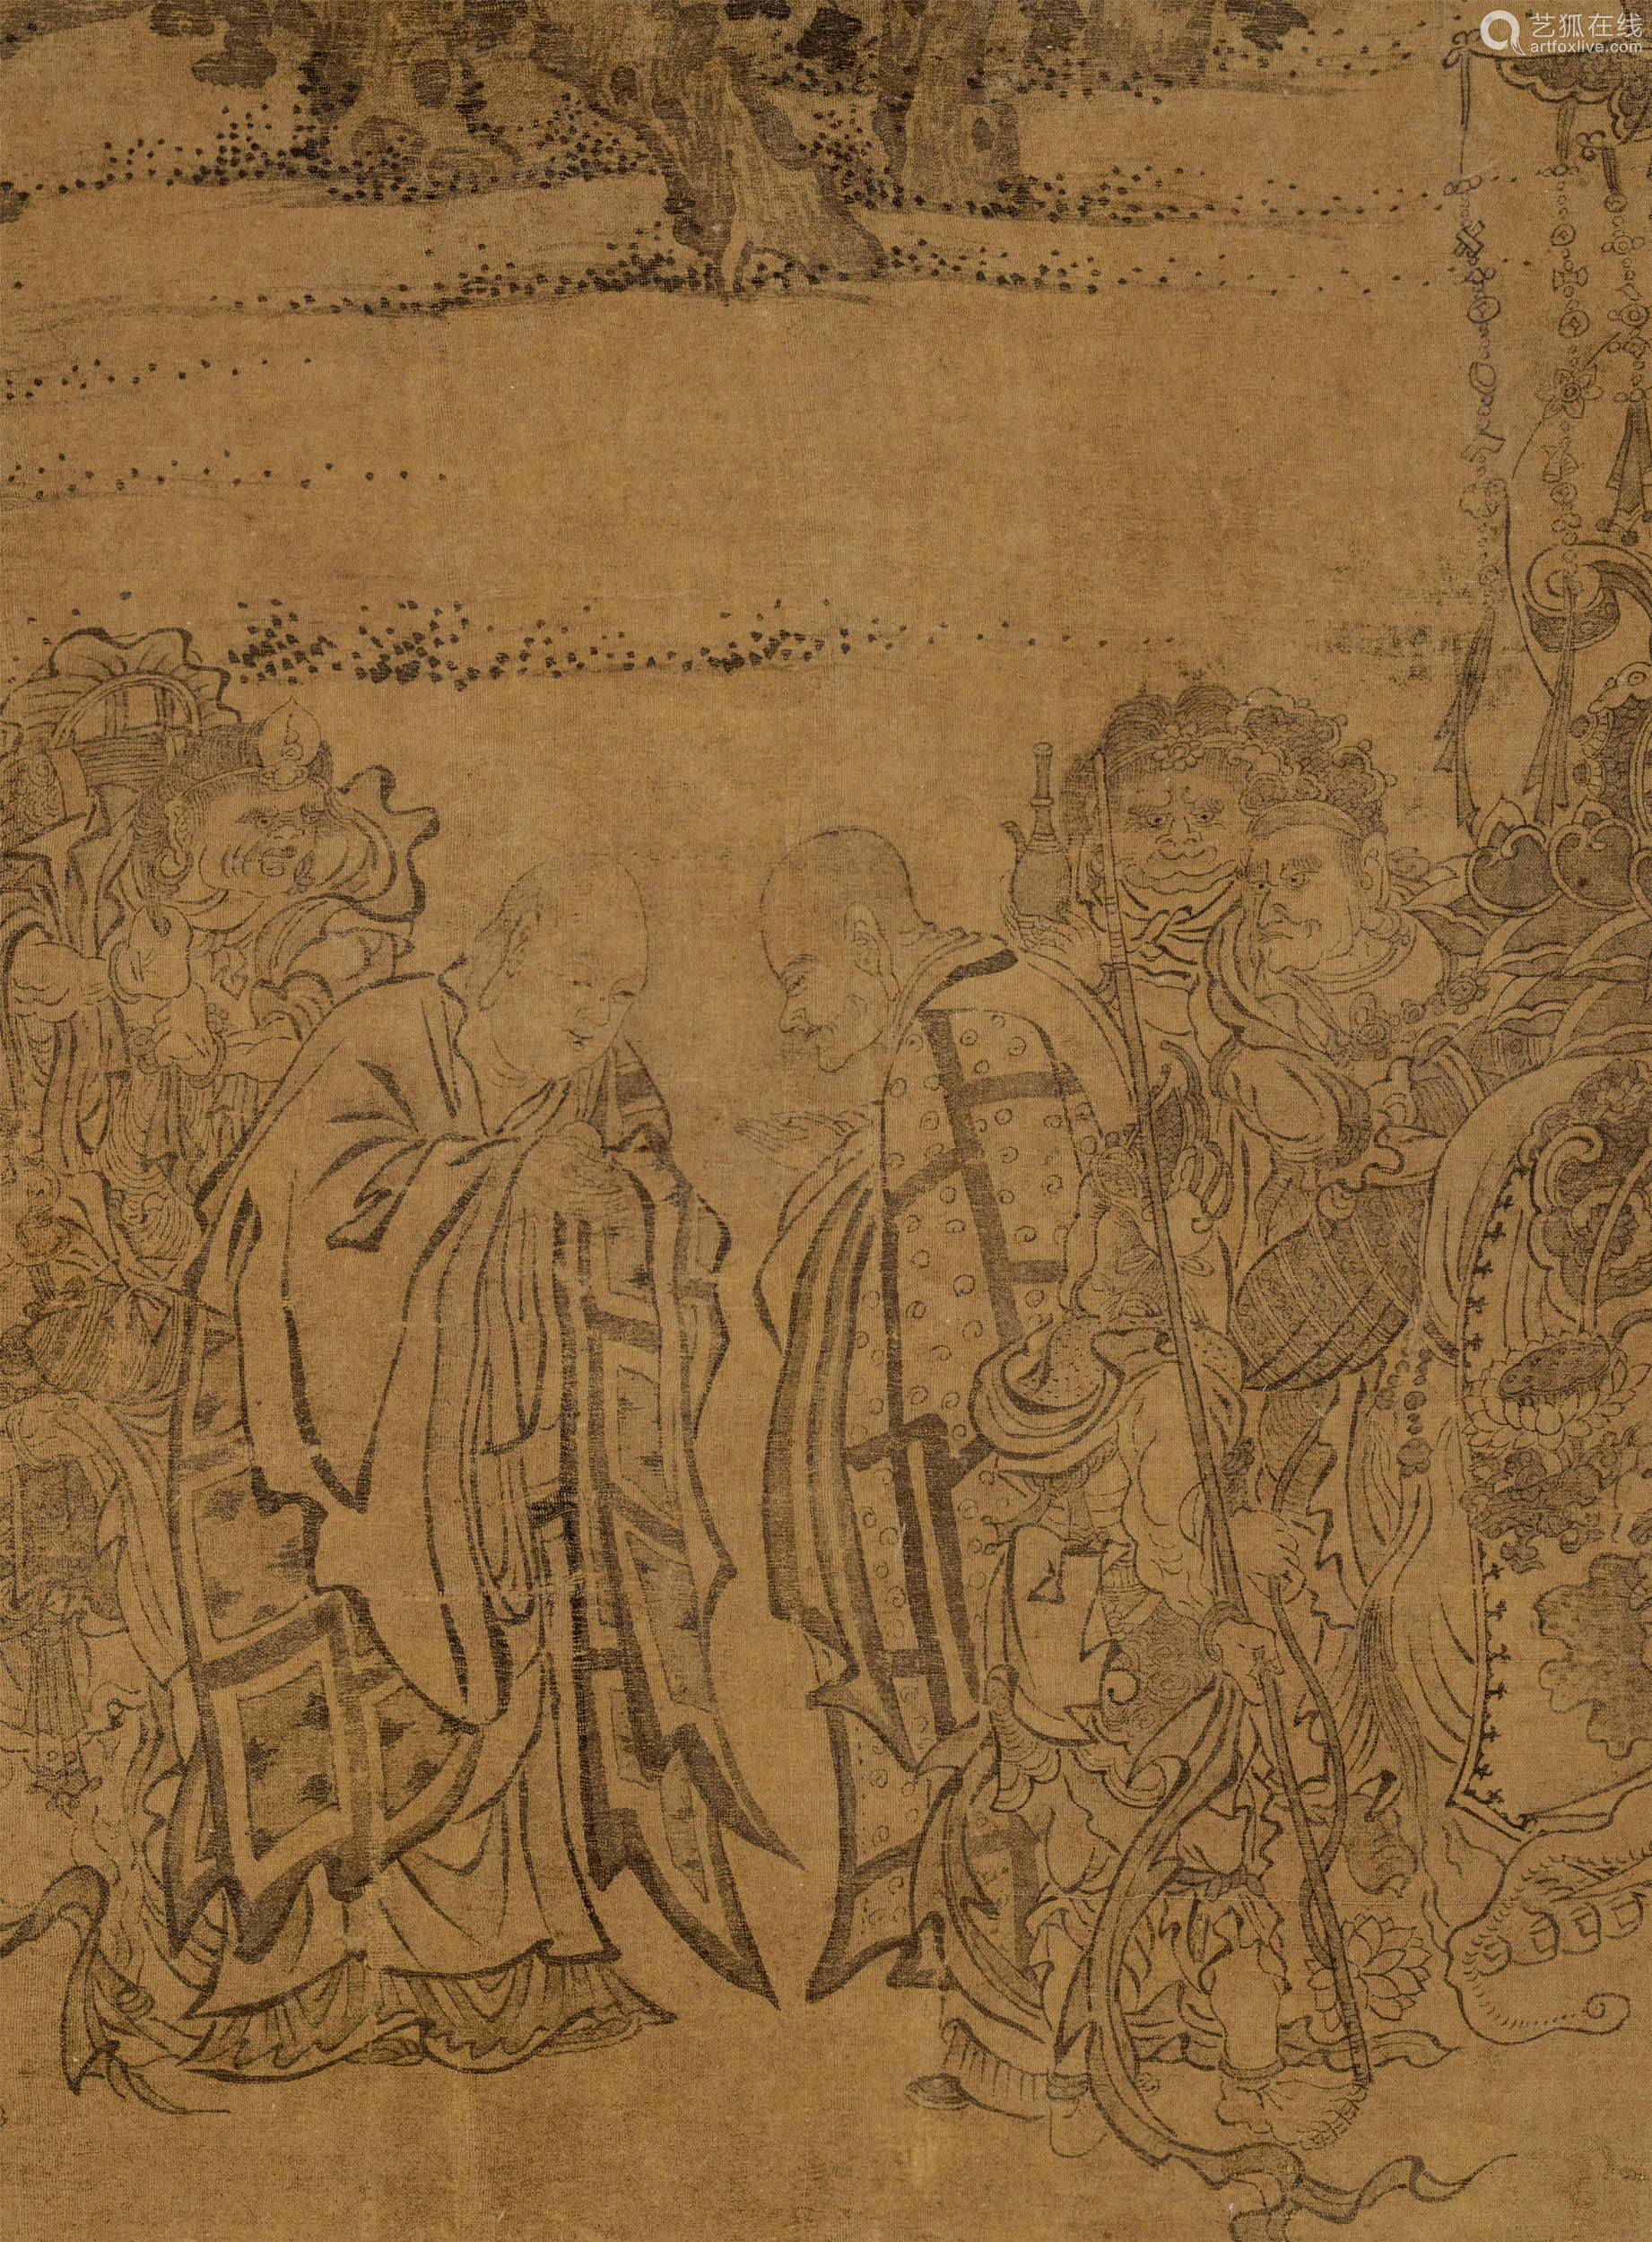 艺狐在线
artfoxlive.com